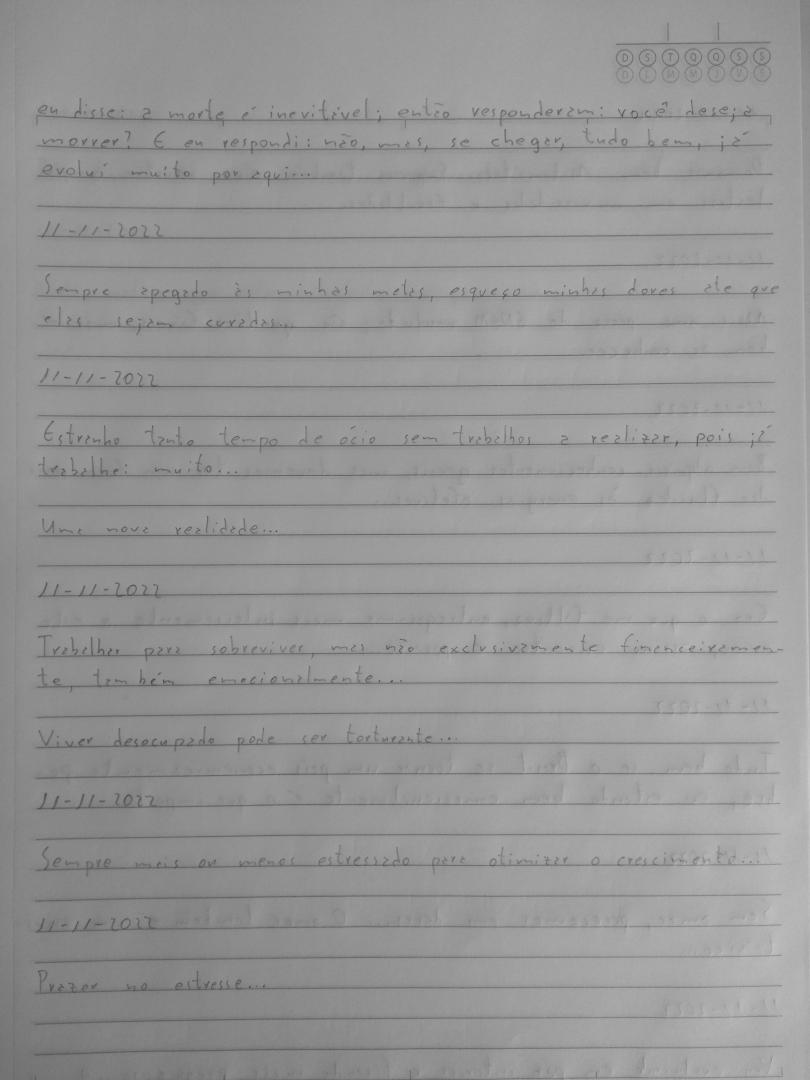 D S T Q Q S S
D L M M J V S
eu disse: a morte é inevitável; então responderam: você deseja
morrer? E eu respondi: não, mas, se chegar, tudo bem, já
evoluí muito por aqui...
11-11-2022
Sempre apegado às minhas metas, esqueço minhas dores até que
elas sejam curadas...
11-11-2022
Estranho tanto tempo de ócio sem trabalhos a realizar, pois já
trabalhei muito...
Uma nova realidade...
11-11-2022
Trabalhar para sobreviver, mas não exclusivamente financeiramen-
te, também emocionalmente...
Viver desocupado pode ser torturante...
11-11-2022
Sempre mais ou menos estressado para otimizar o crescimento...
11-11-2022
Prazer no estresse...